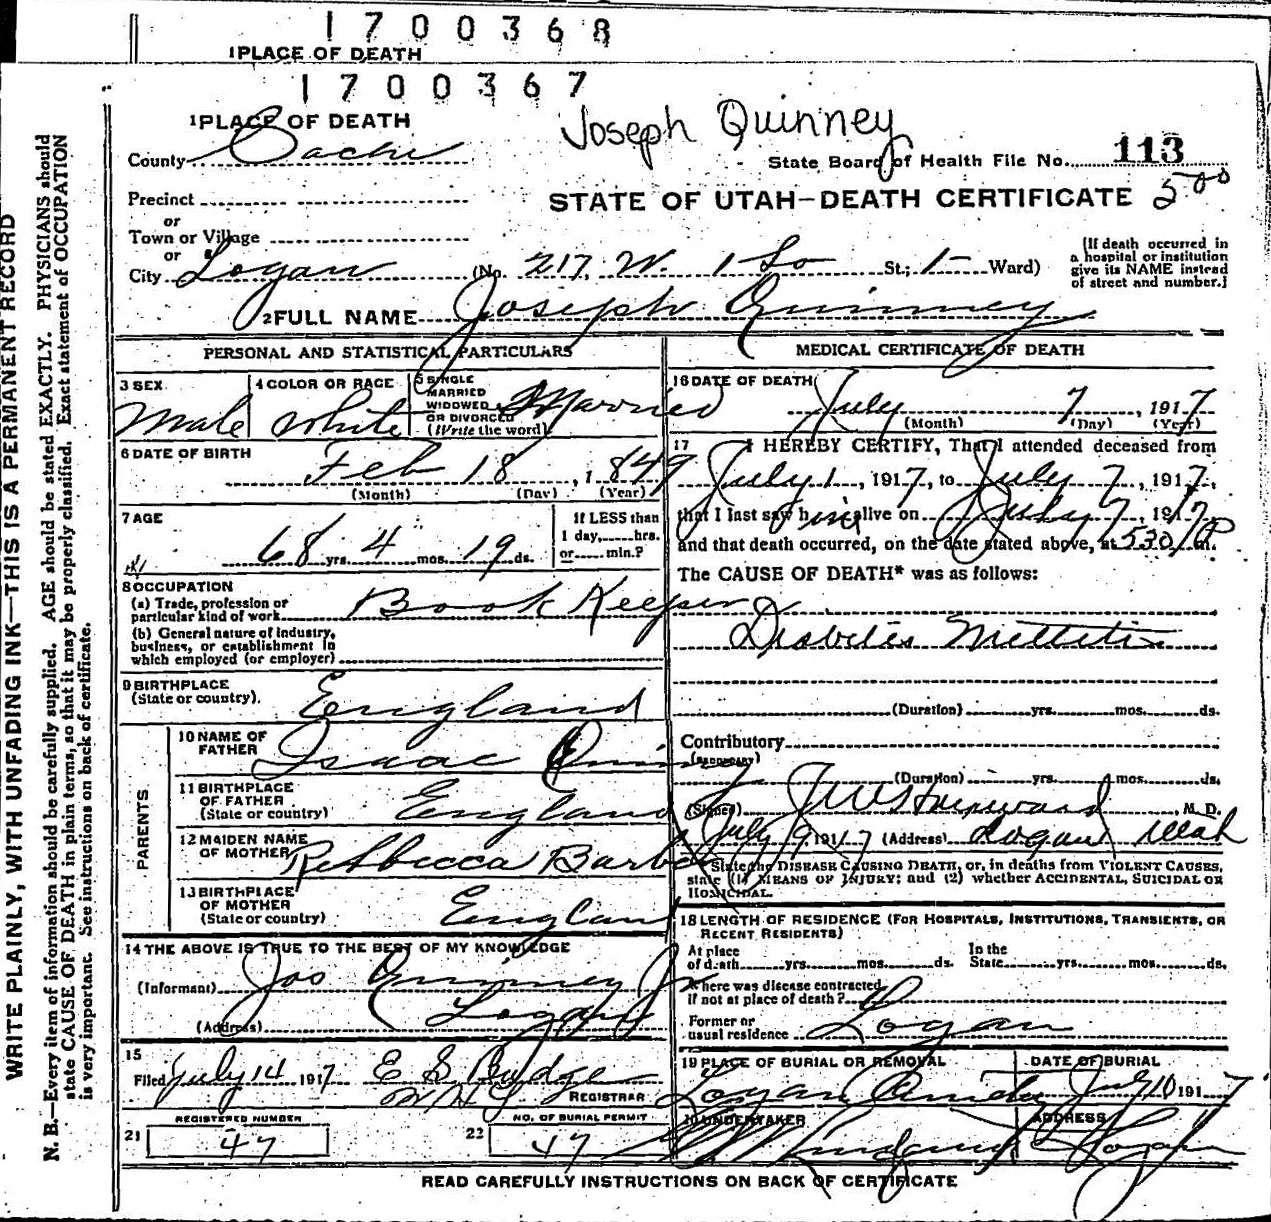 1700368
1 PLACE OF DEATH
1700367
1 PLACE OF DEATH
Joseph Quinney
County Cache
State Board of Health File No. 113
Precinct
STATE OF UTAH—DEATH CERTIFICATE 500
or
Town or Village
or
City Logan (No. 217 W. 1 So St.; 1- Ward)
(If death occurred in a hospital or institution give its NAME instead of street and number.]
2 FULL NAME Joseph Quinney
PERSONAL AND STATISTICAL PARTICULARS
3 SEX Male
4 COLOR OR RACE White
5 SINGLE MARRIED WIDOWED OR DIVORCED (Write the word) Married
6 DATE OF BIRTH
Feb 18, 1849
(Month) (Day) (Year)
7 AGE
68 yrs. 4 mos. 19 ds.
If LESS than 1 day, ...... hrs. or ...... min.?
8 OCCUPATION
(a) Trade, profession or particular kind of work Book Keeper
(b) General nature of industry, business, or establishment in which employed (or employer)
9 BIRTHPLACE
(State or country). England
PARENTS
10 NAME OF FATHER Isaac
11 BIRTHPLACE OF FATHER (State or country) England
12 MAIDEN NAME OF MOTHER Rebbecca
13 BIRTHPLACE OF MOTHER (State or country) England
14 THE ABOVE IS TRUE TO THE BEST OF MY KNOWLEDGE
(Informant) Jos Quinney Jr
(Address) Logan
15
Filed July 14 1917 E S Budge
REGISTRAR
REGISTERED NUMBER
21 47
NO. OF BURIAL PERMIT
22 47
MEDICAL CERTIFICATE OF DEATH
16 DATE OF DEATH
July 7, 1917
(Month) (Day) (Year)
17 I HEREBY CERTIFY, That I attended deceased from
July 1, 1917, to July 7, 1917,
that I last saw him alive on July 7, 1917,
and that death occurred, on the date stated above, at 530 P m.
The CAUSE OF DEATH* was as follows:
Diabetis Mellitis
(Duration) yrs. mos. ds.
Contributory
(Secondary)
(Duration) yrs. mos. ds.
(Signed) M. D.
July 9 1917 (Address) Logan Utah
State the DISEASE CAUSING DEATH, or, in deaths from VIOLENT CAUSES,
state (1) MEANS OF INJURY; and (2) whether ACCIDENTAL, SUICIDAL OR
HOMICIDAL.
18 LENGTH OF RESIDENCE (FOR HOSPITALS, INSTITUTIONS, TRANSIENTS, OR
RECENT RESIDENTS)
At place of death yrs. mos. ds. In the State yrs. mos. ds.
Where was disease contracted
if not at place of death?
Former or usual residence Logan
19 PLACE OF BURIAL OR REMOVAL
Logan
DATE OF BURIAL
July 10 1917
20 UNDERTAKER
ADDRESS
Logan
READ CAREFULLY INSTRUCTIONS ON BACK OF CERTIFICATE
WRITE PLAINLY, WITH UNFADING INK—THIS IS A PERMANENT RECORD
N. B.—Every item of information should be carefully supplied. AGE should be stated EXACTLY. PHYSICIANS should
state CAUSE OF DEATH in plain terms, so that it may be properly classified. Exact statement of OCCUPATION
is very important. See instructions on back of certificate.